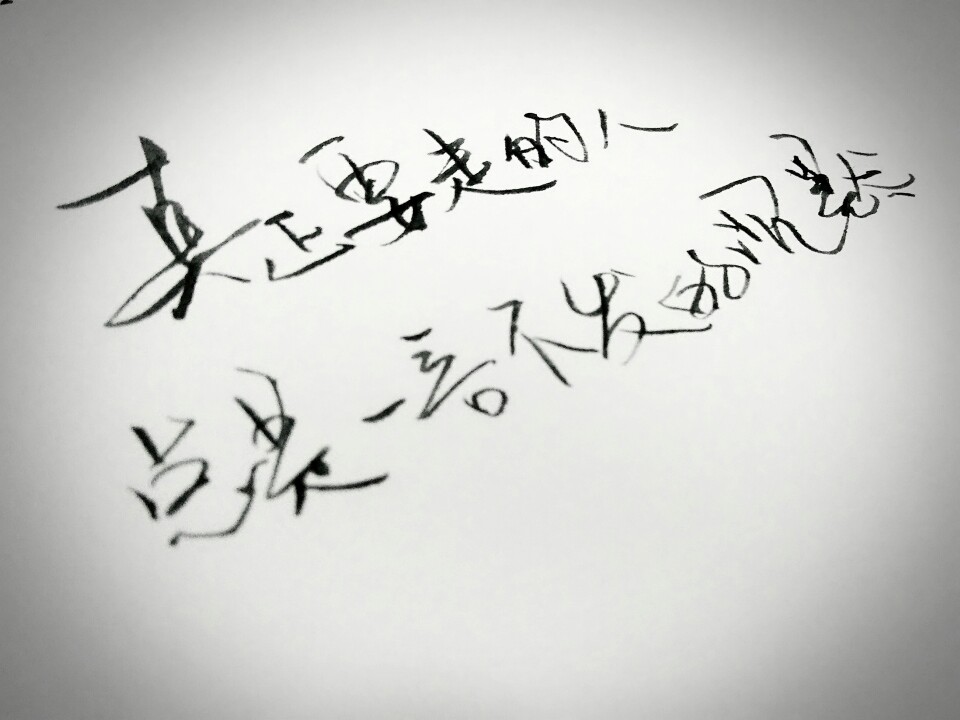 真正要走的人
只是一言不发的沉默